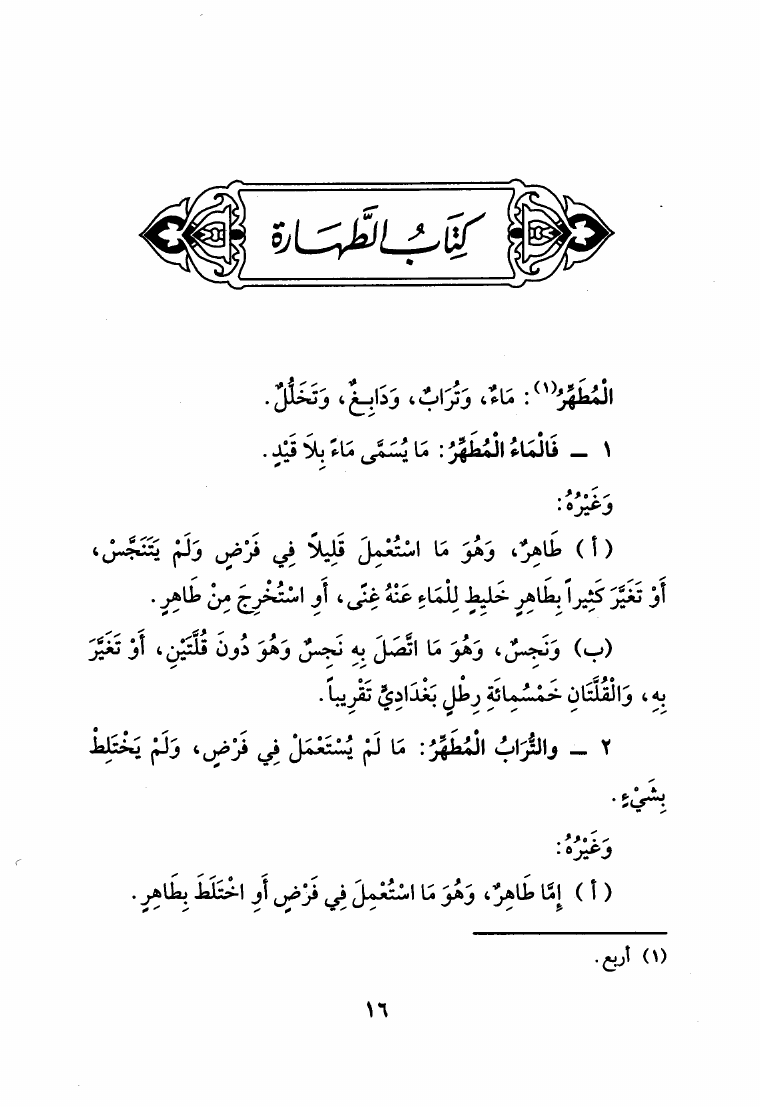 كِتَابُ الطَّهَارَة
الْمُطَهِّرُ(١): مَاءٌ، وَتُرَابٌ، وَدَابِغٌ، وَتَخَلُّلٌ.
١ – فَالْمَاءُ الْمُطَهِّرُ: مَا يُسَمَّى مَاءً بِلَا قَيْدٍ.
وَغَيْرُهُ:
(أ) طَاهِرٌ، وَهُوَ مَا اسْتُعْمِلَ قَلِيلاً فِي فَرْضٍ وَلَمْ يَتَنَجَّسْ،
أَوْ تَغَيَّرَ كَثِيراً بِطَاهِرٍ خَلِيطٍ لِلْمَاءِ عَنْهُ غِنًى، أَوِ اسْتُخْرِجَ مِنْ طَاهِرٍ.
(ب) وَنَجِسٌ، وَهُوَ مَا اتَّصَلَ بِهِ نَجِسٌ وَهُوَ دُونَ قُلَّتَيْنِ، أَوْ تَغَيَّرَ
بِهِ، وَالْقُلَّتَانِ خَمْسُمِائَةِ رِطْلٍ بَغْدَادِيٍّ تَقْرِيباً.
٢ – والتُّرَابُ الْمُطَهِّرُ: مَا لَمْ يُسْتَعْمَلْ فِي فَرْضٍ، وَلَمْ يَخْتَلِطْ
بِشَيْءٍ.
وَغَيْرُهُ:
(أ) إِمَّا طَاهِرٌ، وَهُوَ مَا اسْتُعْمِلَ فِي فَرْضٍ أَوِ اخْتَلَطَ بِطَاهِرٍ.
(١) أربع.
١٦